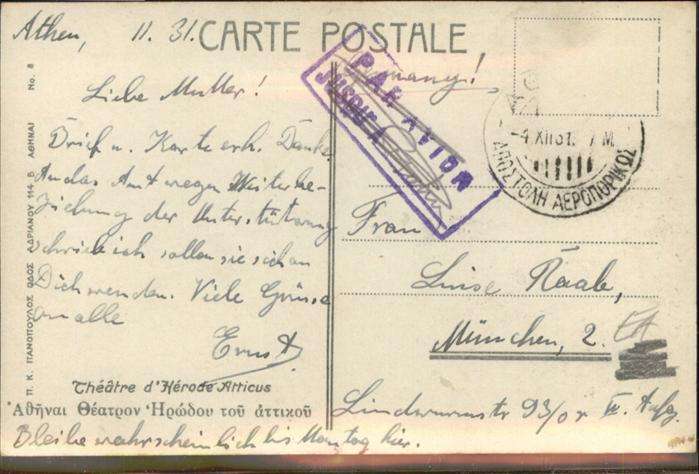 Athen, 11.31.
CARTE POSTALE
Liebe Mutter!
Brief u. Karte erh. Danke.
An das Amt wegen Weiterbe-
ziehung der Unterstützung
schrieb ich sollen sie sich an
Dich wenden. Viele Grüsse
an alle
Ernst
Théâtre d'Hérode Atticus
Ἀθῆναι Θέατρον Ἡρώδου τοῦ ἀττικοῦ
Bleibe wahrscheinlich bis Montag hier.
Π. Κ. ΠΑΝΟΠΟΥΛΟΣ ΟΔΟΣ ΑΔΡΙΑΝΟΥ 114 Β ΑΘΗΝΑΙ No. 8
PAR AVION
JUSQU'A
-4 XII 31. 7 M.
ΑΠΟΣΤΟΛΗ ΑΕΡΟΠΟΡΙΚΩΣ
Frau
Luise Raab,
München, 2.
Lindwurmstr 93/0